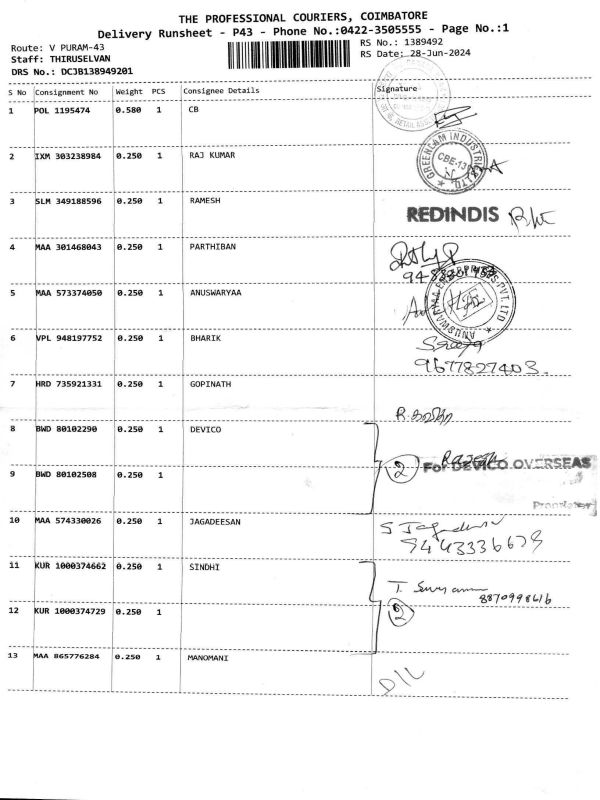 THE PROFESSIONAL COURIERS, COIMBATORE
Delivery Runsheet - P43 - Phone No.:0422-3505555 - Page No.:1
Route: V PURAM-43
RS No.: 1389492
Staff: THIRUSELVAN
RS Date: 28-Jun-2024
DRS No.: DCJB138949201
S No Consignment No Weight PCS Consignee Details Signature
1 POL 1195474 0.580 1 CB
2 IXM 303238984 0.250 1 RAJ KUMAR
GREENCAM INDUSTRIES
CBE-13
3 SLM 349188596 0.250 1 RAMESH REDINDIS
4 MAA 301468043 0.250 1 PARTHIBAN
5 MAA 573374050 0.250 1 ANUSWARYAA
ANUSWARYAA ENTERPRISES PVT. LTD
6 VPL 948197752 0.250 1 BHARIK
9677827403
7 HRD 735921331 0.250 1 GOPINATH
8 BWD 80102290 0.250 1 DEVICO
2 For DEVICO OVERSEAS
9 BWD 80102508 0.250 1
Proprietor
10 MAA 574330026 0.250 1 JAGADEESAN
11 KUR 1000374662 0.250 1 SINDHI
8870998616
12 KUR 1000374729 0.250 1 2
13 MAA 865776284 0.250 1 MANOMANI